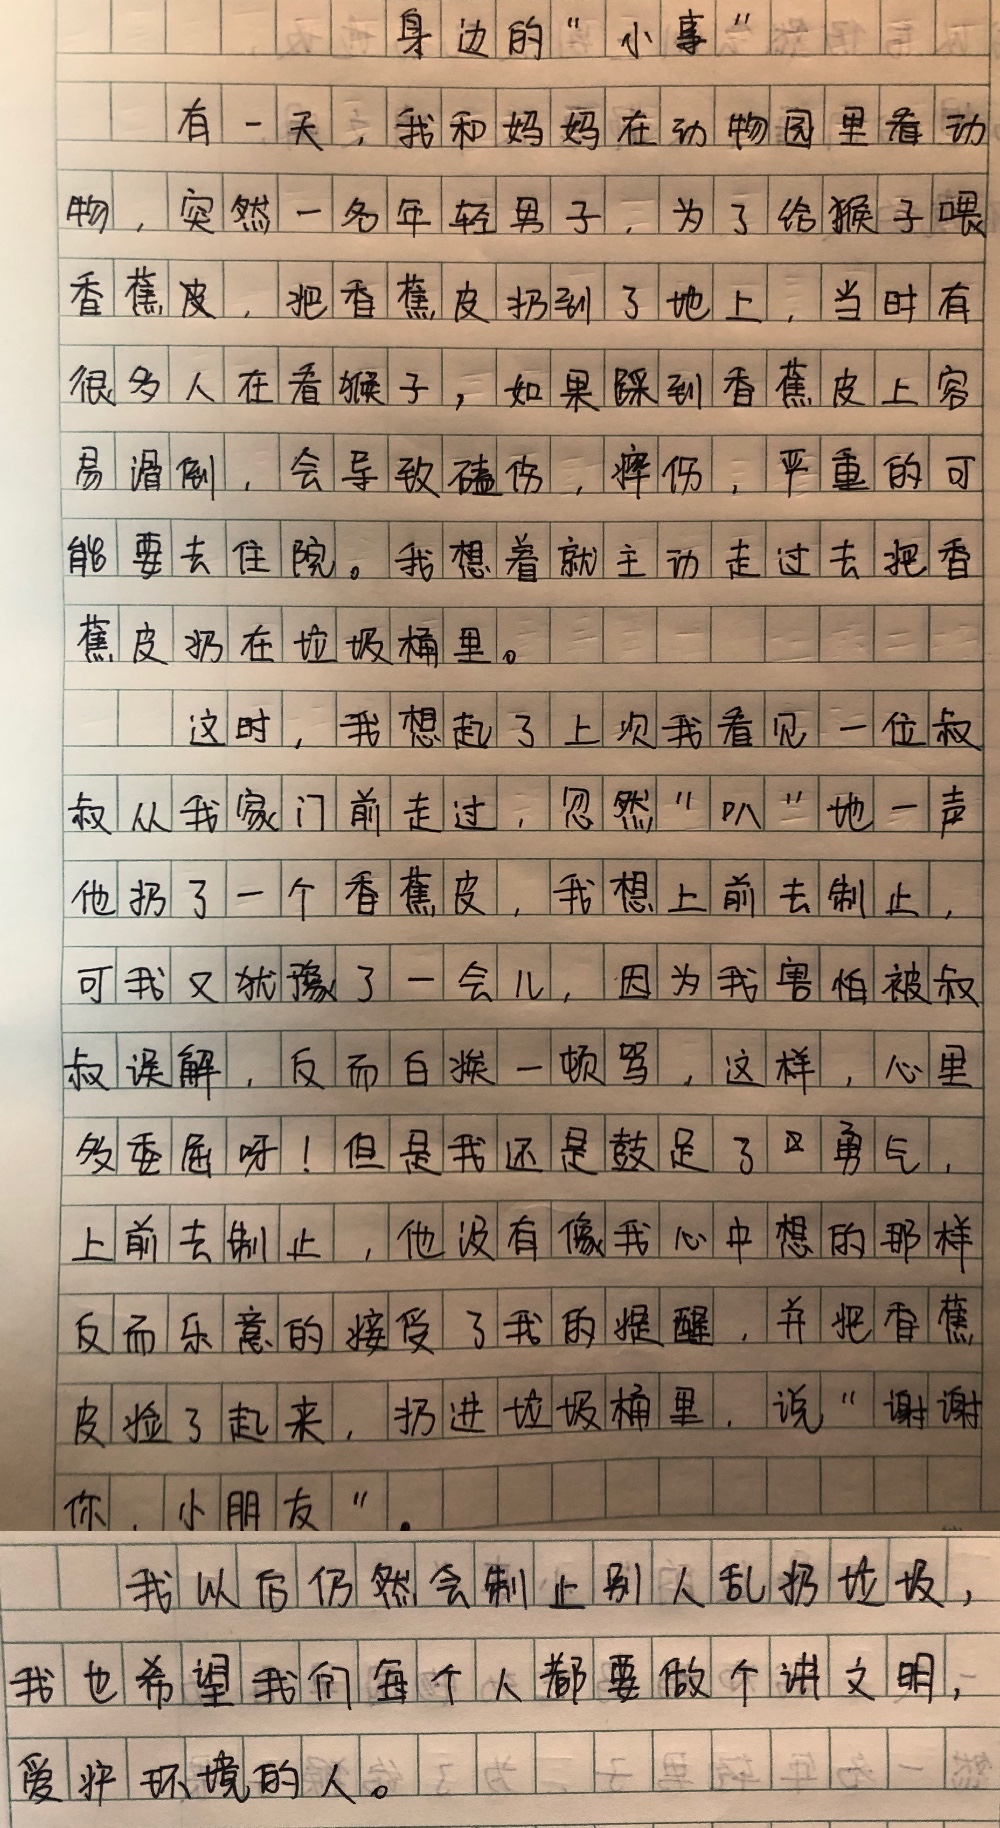 身边的“小事”
有一天，我和妈妈在动物园里看动
物，突然一名年轻男子，为了给猴子喂
香蕉皮，把香蕉皮扔到了地上，当时有
很多人在看猴子，如果踩到香蕉皮上容
易滑倒，会导致磕伤，摔伤，严重的可
能要去住院。我想着就主动走过去把香
蕉皮扔在垃圾桶里。
这时，我想起了上次我看见一位叔
叔从我家门前走过，忽然“叭”地一声
他扔了一个香蕉皮，我想上前去制止，
可我又犹豫了一会儿，因为我害怕被叔
叔误解，反而白挨一顿骂，这样，心里
多委屈呀！但是我还是鼓足了勇气，
上前去制止，他没有像我心中想的那样
反而乐意的接受了我的提醒，并把香蕉
皮捡了起来，扔进垃圾桶里，说“谢谢
你，小朋友”。
我以后仍然会制止别人乱扔垃圾，
我也希望我们每个人都要做个讲文明，
爱护环境的人。